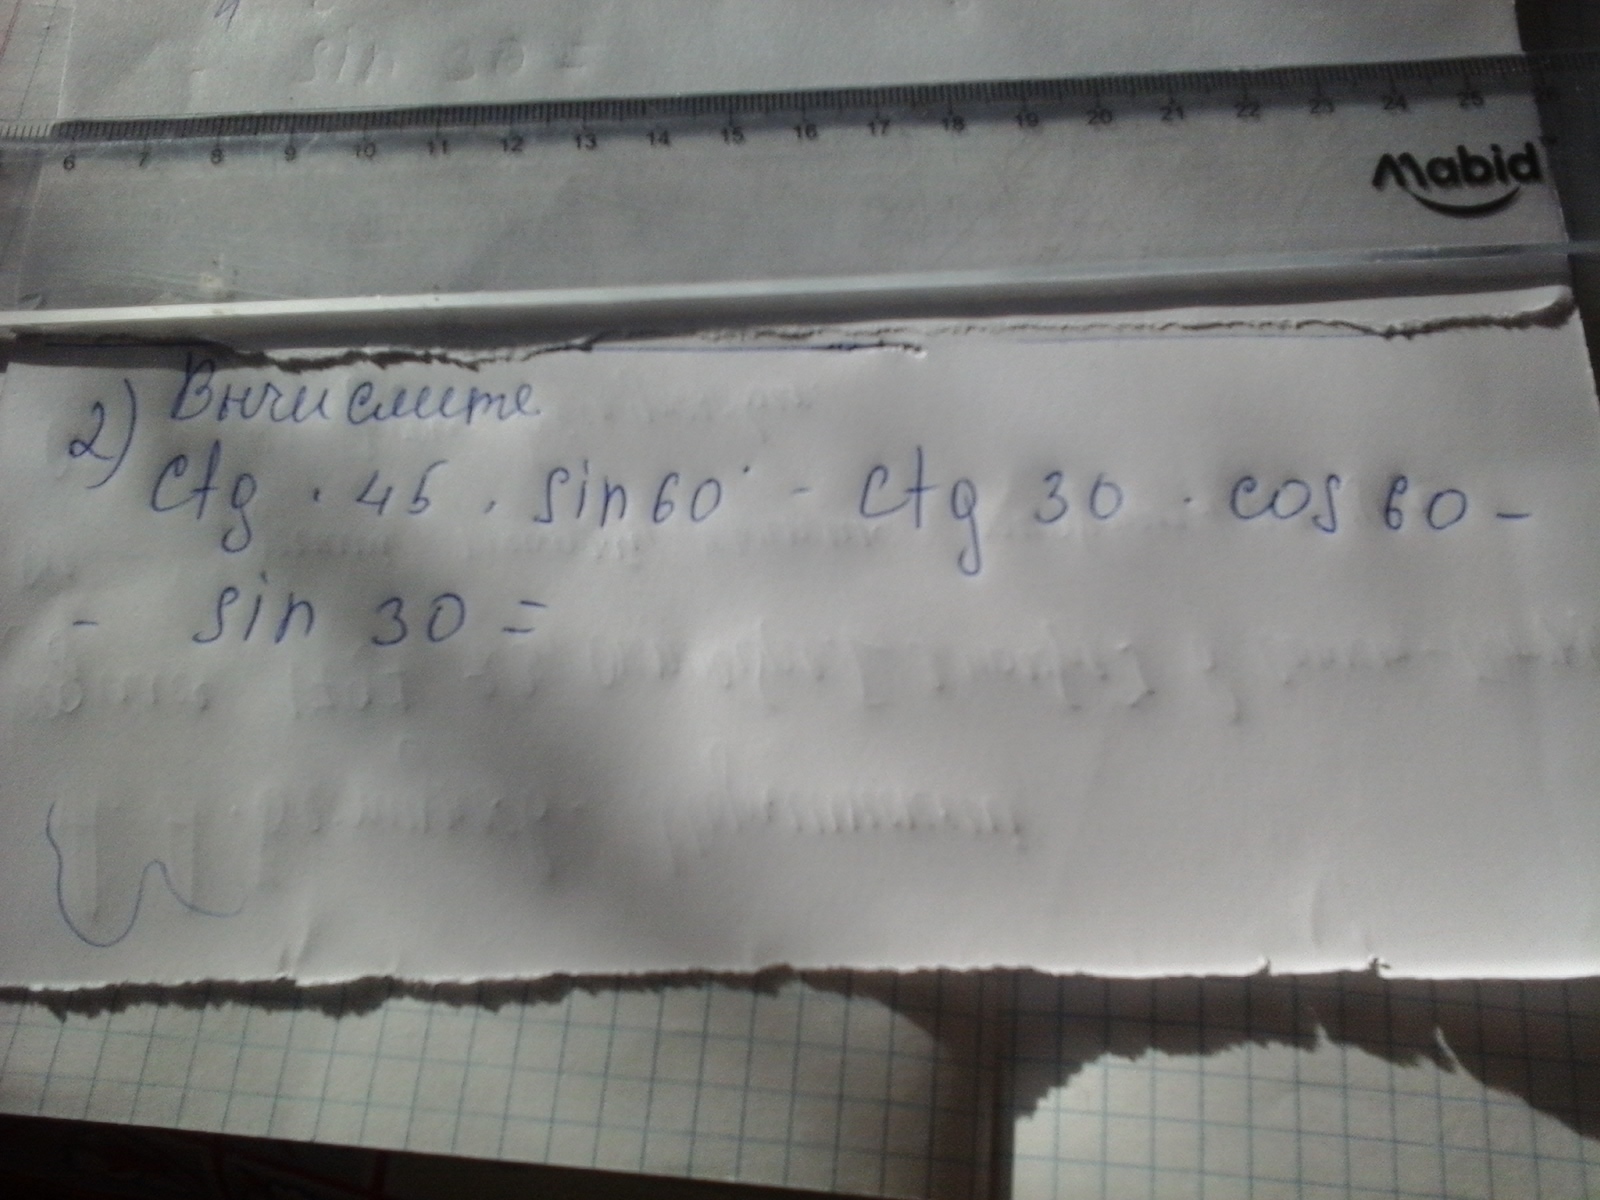 6 7 8 9 10 11 12 13 14 15 16 17 18 19 20 21 22 23 24 25
Mabid
2) Вычислите
ctg · 45 · sin 60° - ctg 30 · cos 60 -
- sin 30 =